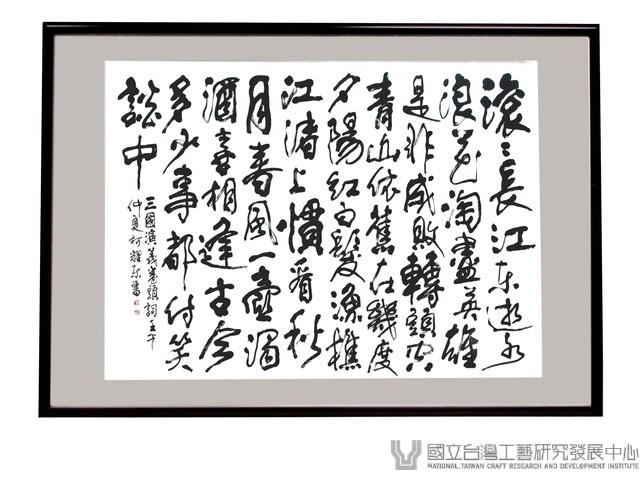 滾〻長江東逝水
浪花淘盡英雄
是非成敗轉頭空
青山依舊在幾度
夕陽紅白髮漁樵
江渚上慣看秋
月春風一壺濁
酒喜相逢古今
多少事都付笑
談中
三國演義卷頭詞壬午
仲夏柯耀東書
國立台灣工藝研究發展中心
NATIONAL TAIWAN CRAFT RESEARCH AND DEVELOPMENT INSTITUTE